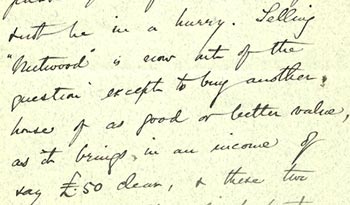 must be in a hurry. Selling
"Nutwood" is now out of the
question except to buy another
house of as good or better value,
as it brings in an income of
say £50 clear, & these two